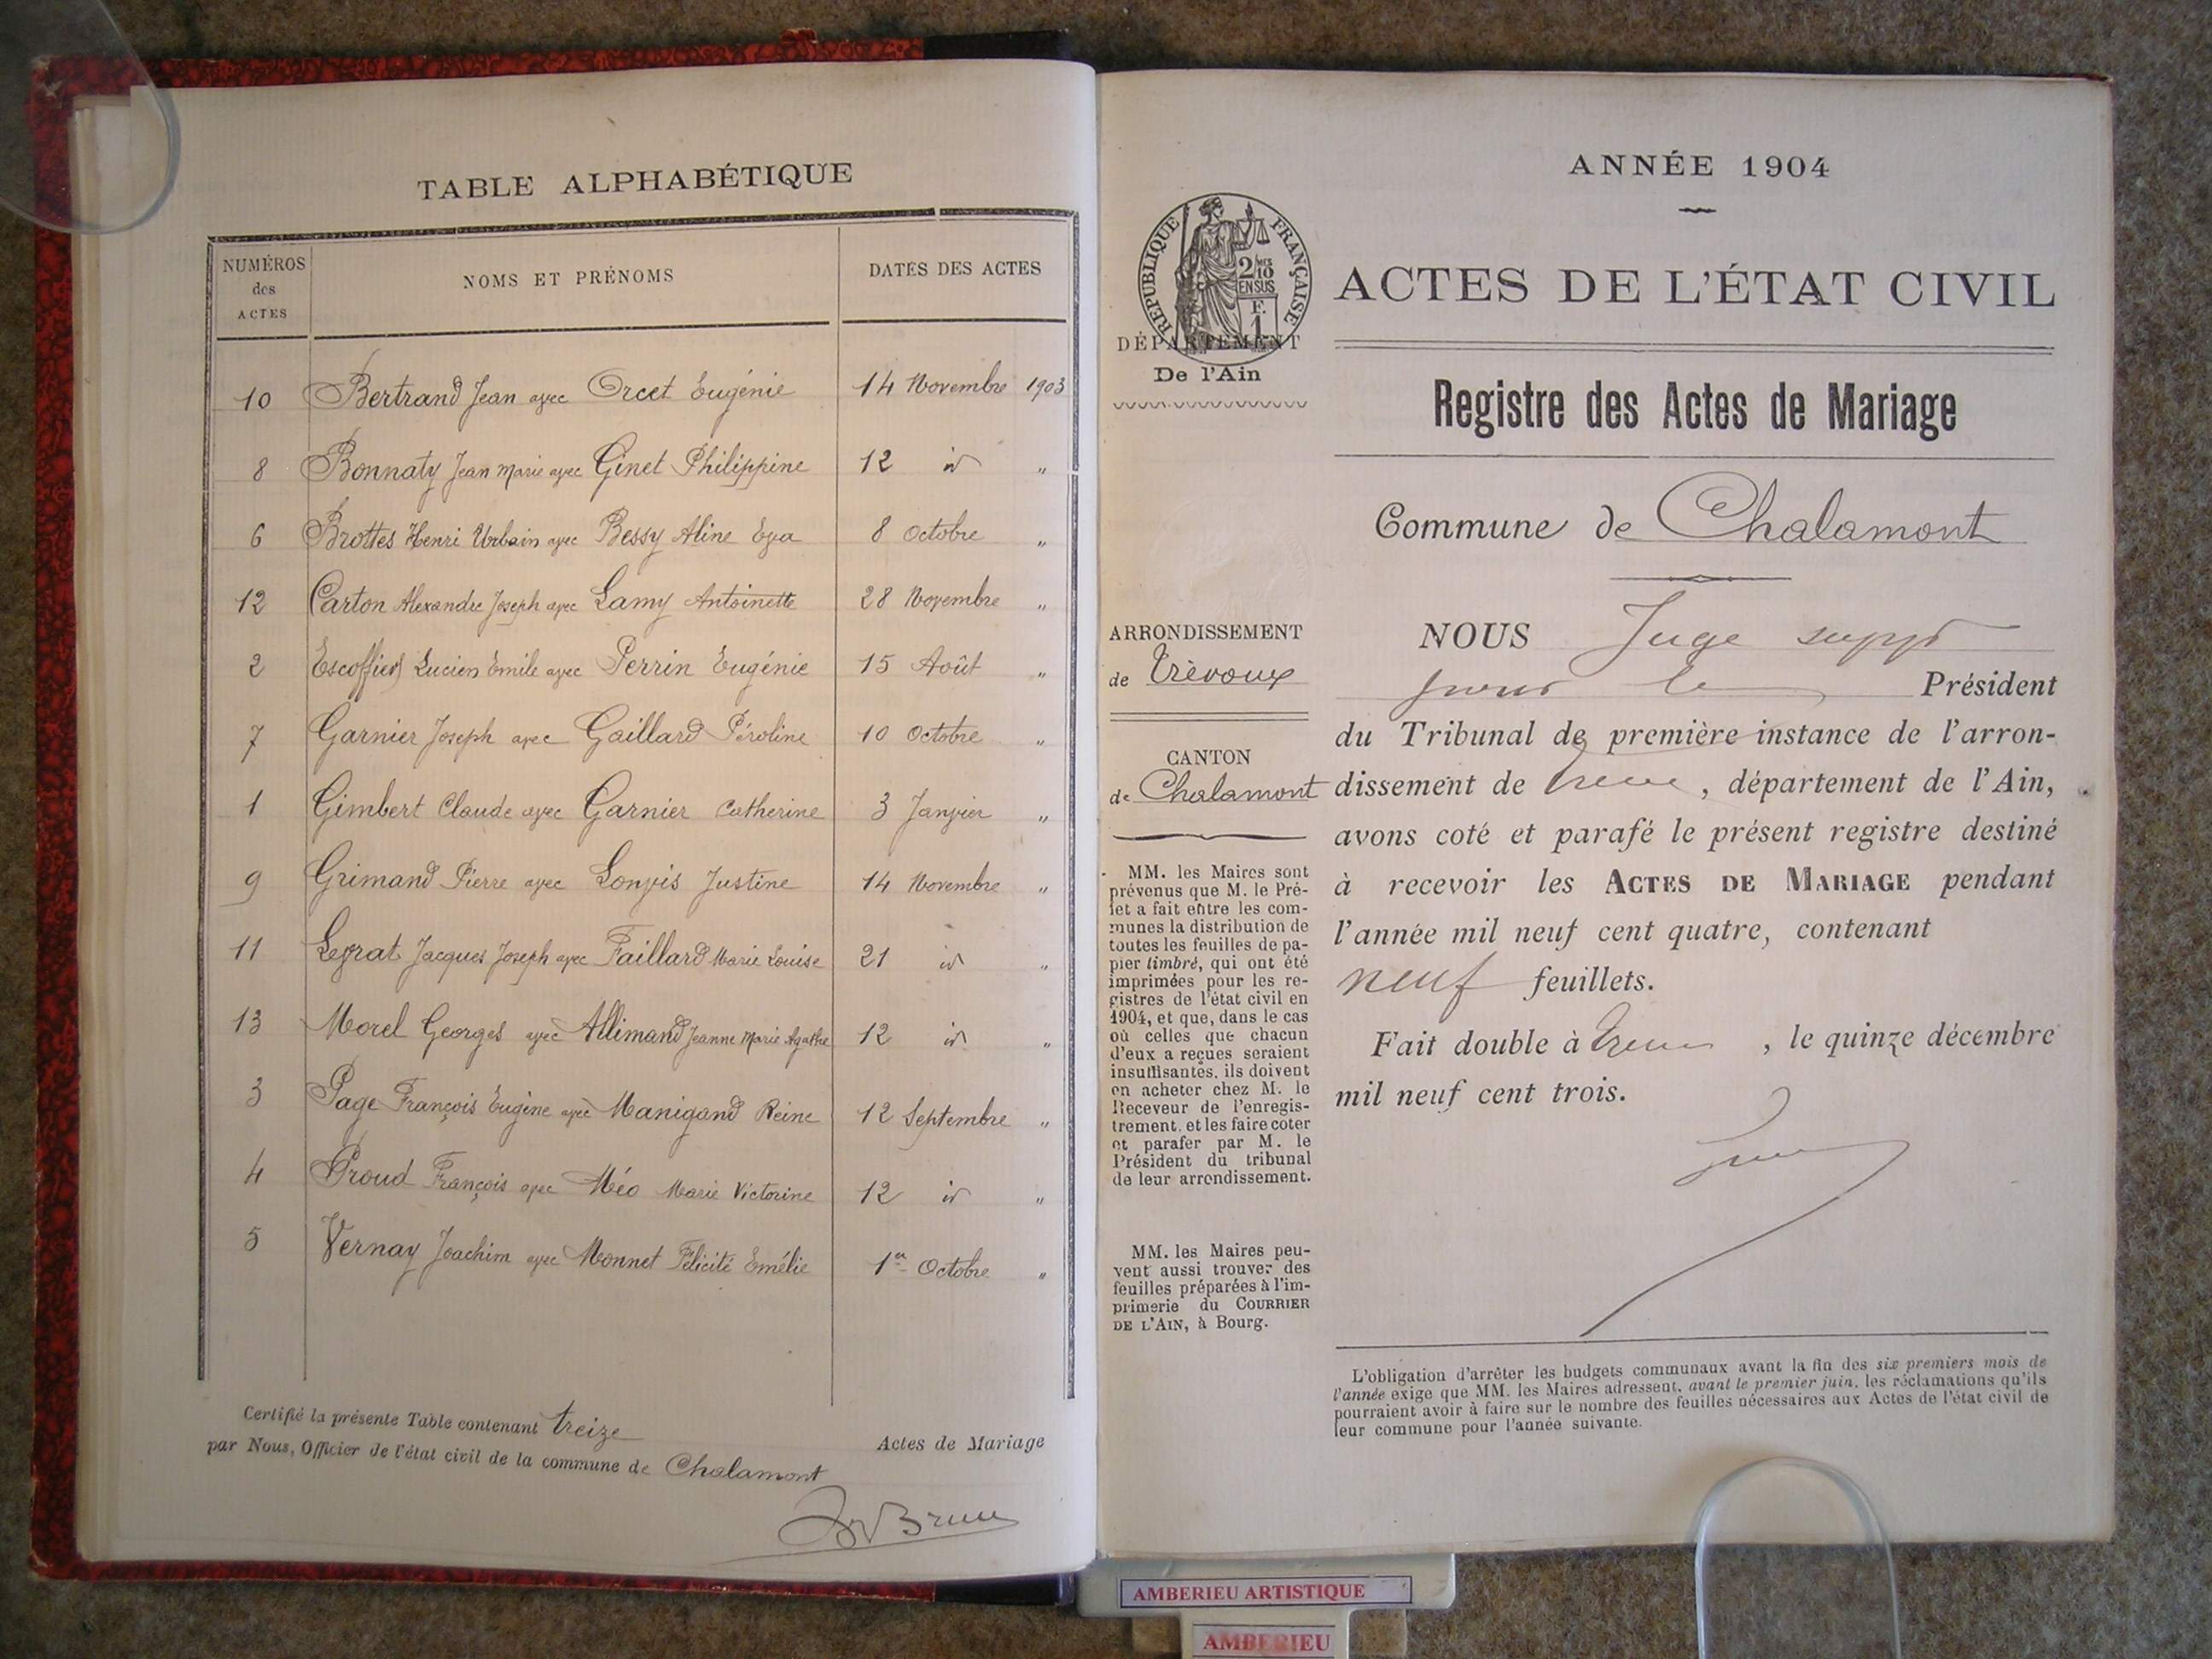 TABLE ALPHABÉTIQUE
NUMÉROS
des
ACTES
NOMS ET PRÉNOMS
DATES DES ACTES
10 Bertrand Jean avec Orcet Eugénie 14 Novembre 1903
8 Bonnaty Jean Marie avec Ginet Philippine 12 id "
6 Brottes Henri Urbain avec Bessy Aline Eva 8 Octobre "
12 Carton Alexandre Joseph avec Lamy Antoinette 28 Novembre "
2 Escoffier Lucien Emile avec Perrin Eugénie 15 Août "
7 Garnier Joseph avec Gaillard Péroline 10 Octobre "
1 Gimbert Claude avec Garnier Catherine 3 Janvier "
9 Grimand Pierre avec Lonvis Justine 14 Novembre "
11 Legrat Jacques Joseph avec Faillard Marie Louise 21 id "
13 Morel Georges avec Allimand Jeanne Marie Agathe 12 id "
3 Page François Eugène avec Manigand Reine 12 Septembre "
4 Proud François avec Méo Marie Victorine 12 id "
5 Vernay Joachim avec Monnet Félicité Emélie 1er Octobre "
Certifié la présente Table contenant treize Actes de Mariage
par Nous, Officier de l'état civil de la commune de Chalamont
Brun
ANNÉE 1904
RÉPUBLIQUE FRANÇAISE
2/10 MES
EN SUS
F.
1
ACTES DE L'ÉTAT CIVIL
DÉPARTEMENT
De l'Ain
Registre des Actes de Mariage
Commune de Chalamont
ARRONDISSEMENT
de Trévoux
CANTON
de Chalamont
MM. les Maires sont
prévenus que M. le Pré-
fet a fait entre les com-
munes la distribution de
toutes les feuilles de pa-
pier timbré, qui ont été
imprimées pour les re-
gistres de l'état civil en
1904, et que, dans le cas
où celles que chacun
d'eux a reçues seraient
insuffisantes, ils doivent
en acheter chez M. le
Receveur de l'enregis-
trement, et les faire coter
et parafer par M. le
Président du tribunal
de leur arrondissement.
MM. les Maires peu-
vent aussi trouver des
feuilles préparées à l'im-
primerie du COURRIER
DE L'AIN, à Bourg.
NOUS Juge suppt
pour le Président
du Tribunal de première instance de l'arron-
dissement de , département de l'Ain,
avons coté et parafé le présent registre destiné
à recevoir les ACTES DE MARIAGE pendant
l'année mil neuf cent quatre, contenant
neuf feuillets.
Fait double à , le quinze décembre
mil neuf cent trois.
L'obligation d'arrêter les budgets communaux avant la fin des six premiers mois de
l'année exige que MM. les Maires adressent, avant le premier juin, les réclamations qu'ils
pourraient avoir à faire sur le nombre des feuilles nécessaires aux Actes de l'état civil de
leur commune pour l'année suivante.
AMBERIEU ARTISTIQUE
AMBERIEU